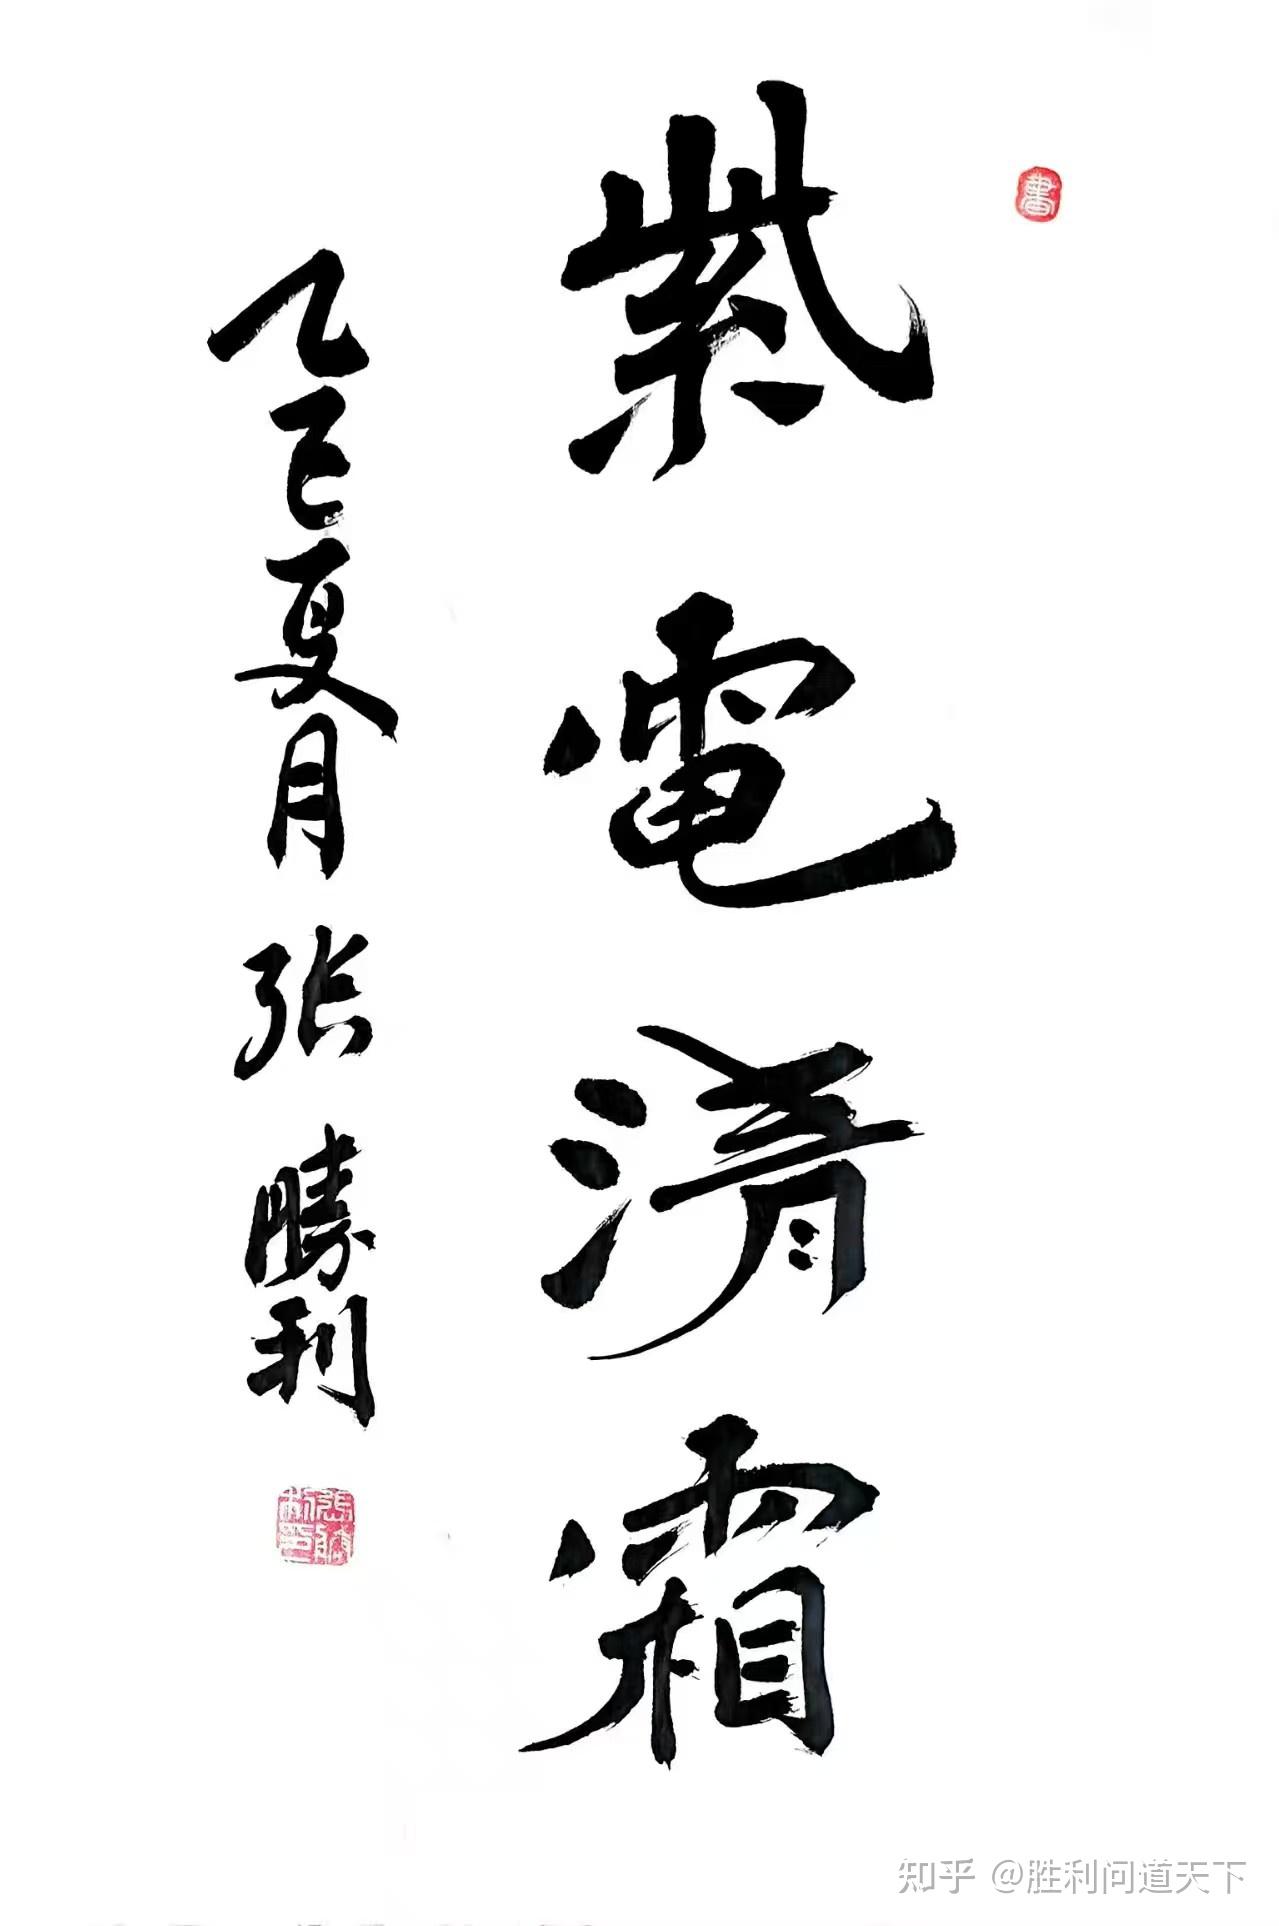 書
紫電清霜
乙巳夏月 张勝利
知乎 @胜利问道天下